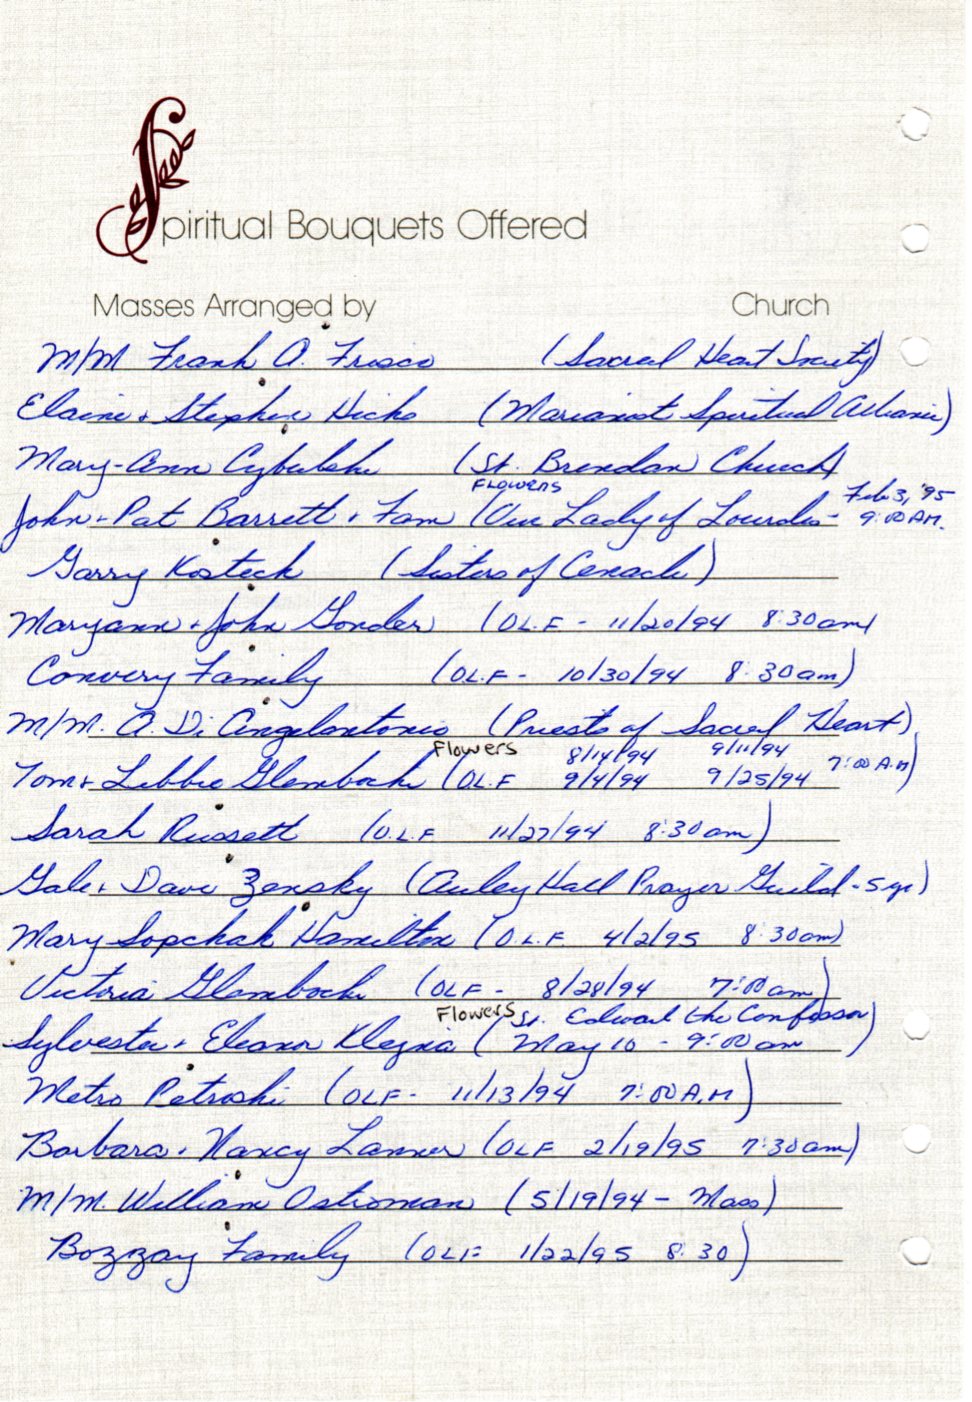 Spiritual Bouquets Offered
Masses Arranged by Church
M/M Frank A. Frisco (Sacred Heart Society)
Elaine + Stephen Hicks (Marianist Spiritual Alliance)
Mary-Ann Cybulski (St. Brendan Church)
FLOWERS Feb 3, '95
John + Pat Barrett + Fam (Our Lady of Lourdes - 9:00 AM.
Garry Kosteck (Sisters of Cenacle)
Maryann + John Gonder (OL.F - 11/20/94 8:30am)
Convery Family (OL.F - 10/30/94 8:30am)
M/M. A. Di Angelantonio (Priests of Sacred Heart)
Flowers 8/14/94 9/11/94
Tom + Libbie Glembocki (OL.F 9/4/94 9/25/94 7:00 A.M)
Sarah Russett (O.L.F 11/27/94 8:30am)
Gale + Dave Zensky (Auley Hall Prayer Guild - 5 yr)
Mary Sopchak Hamilton (O.L.F. 4/2/95 8:30am)
Victoria Glembocki (OLF - 8/28/94 7:00am)
Flowers St. Edward the Confessor)
Sylvester + Eleanor (May 10 - 9:00 am
Metro Petroski (OLF - 11/13/94 7:00 A.M)
Barbara + Nancy Lanner (OLF 2/19/95 7:30am)
M/M. William Ostroman (5/19/94 - Mass)
Bozzay Family (OLF 1/22/95 8:30)